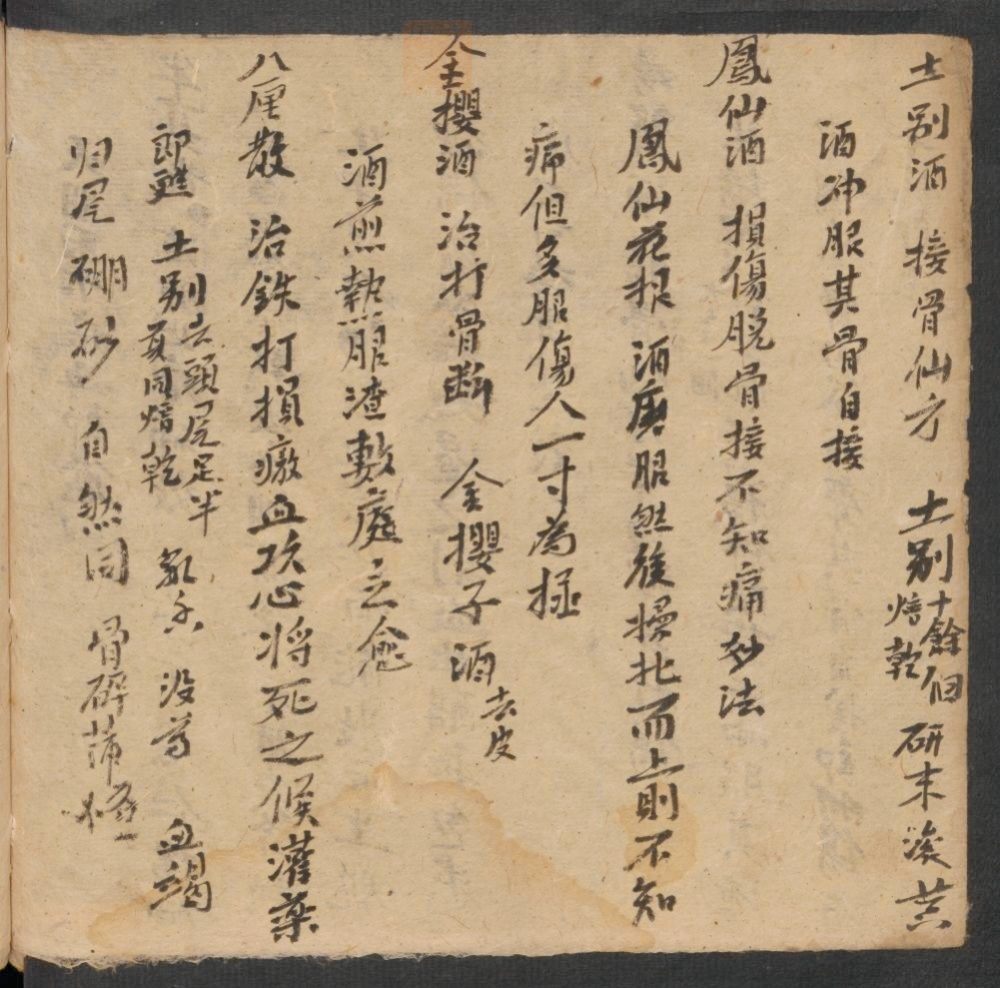 土别酒 接骨仙方 土别十餘個焙乾 研末滚黄
酒冲服其骨自接
鳳仙酒 損傷脱骨接不知痛妙法
鳳仙花根 酒磨服然後操扯而上則不知
痛但多服傷人一寸為極
金櫻酒 治打骨断 金櫻子酒去皮
酒煎熱服渣敷處立愈
八厘散 治鉄打損瘀血攻心将死之候灌藥
即甦 土别去頭尾足半夏同焙乾 乳香 没药 血竭
归尾 硼砂 自然同 骨碎